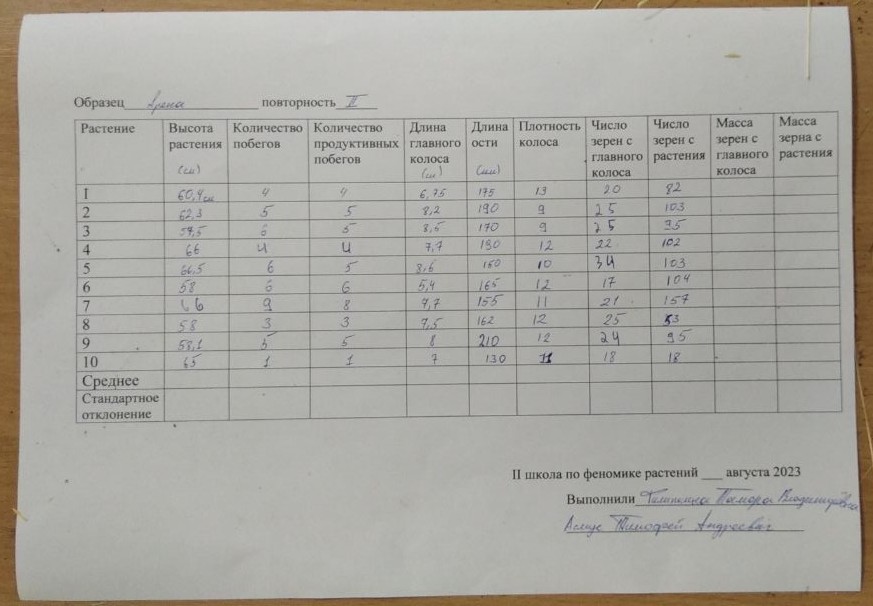 Образец Арена повторность II
Растение Высота растения (см) Количество побегов Количество продуктивных побегов Длина главного колоса (см) Длина ости (мм) Плотность колоса Число зерен с главного колоса Число зерен с растения Масса зерен с главного колоса Масса зерна с растения
1 60,4см 4 4 6,75 175 13 20 82
2 62,3 5 5 8,2 190 9 25 103
3 57,5 6 5 8,5 170 9 25 95
4 66 4 4 7,7 190 12 22 102
5 66,5 6 5 8,6 160 10 34 103
6 58 6 6 5,4 165 12 17 104
7 66 9 8 7,7 155 11 21 157
8 58 3 3 7,5 162 12 25 53
9 58,1 5 5 8 210 12 24 95
10 65 1 1 7 130 11 18 18
Среднее
Стандартное отклонение
II школа по феномике растений ___ августа 2023
Выполнили Тамара Владимировна
Тимофей Андреевич